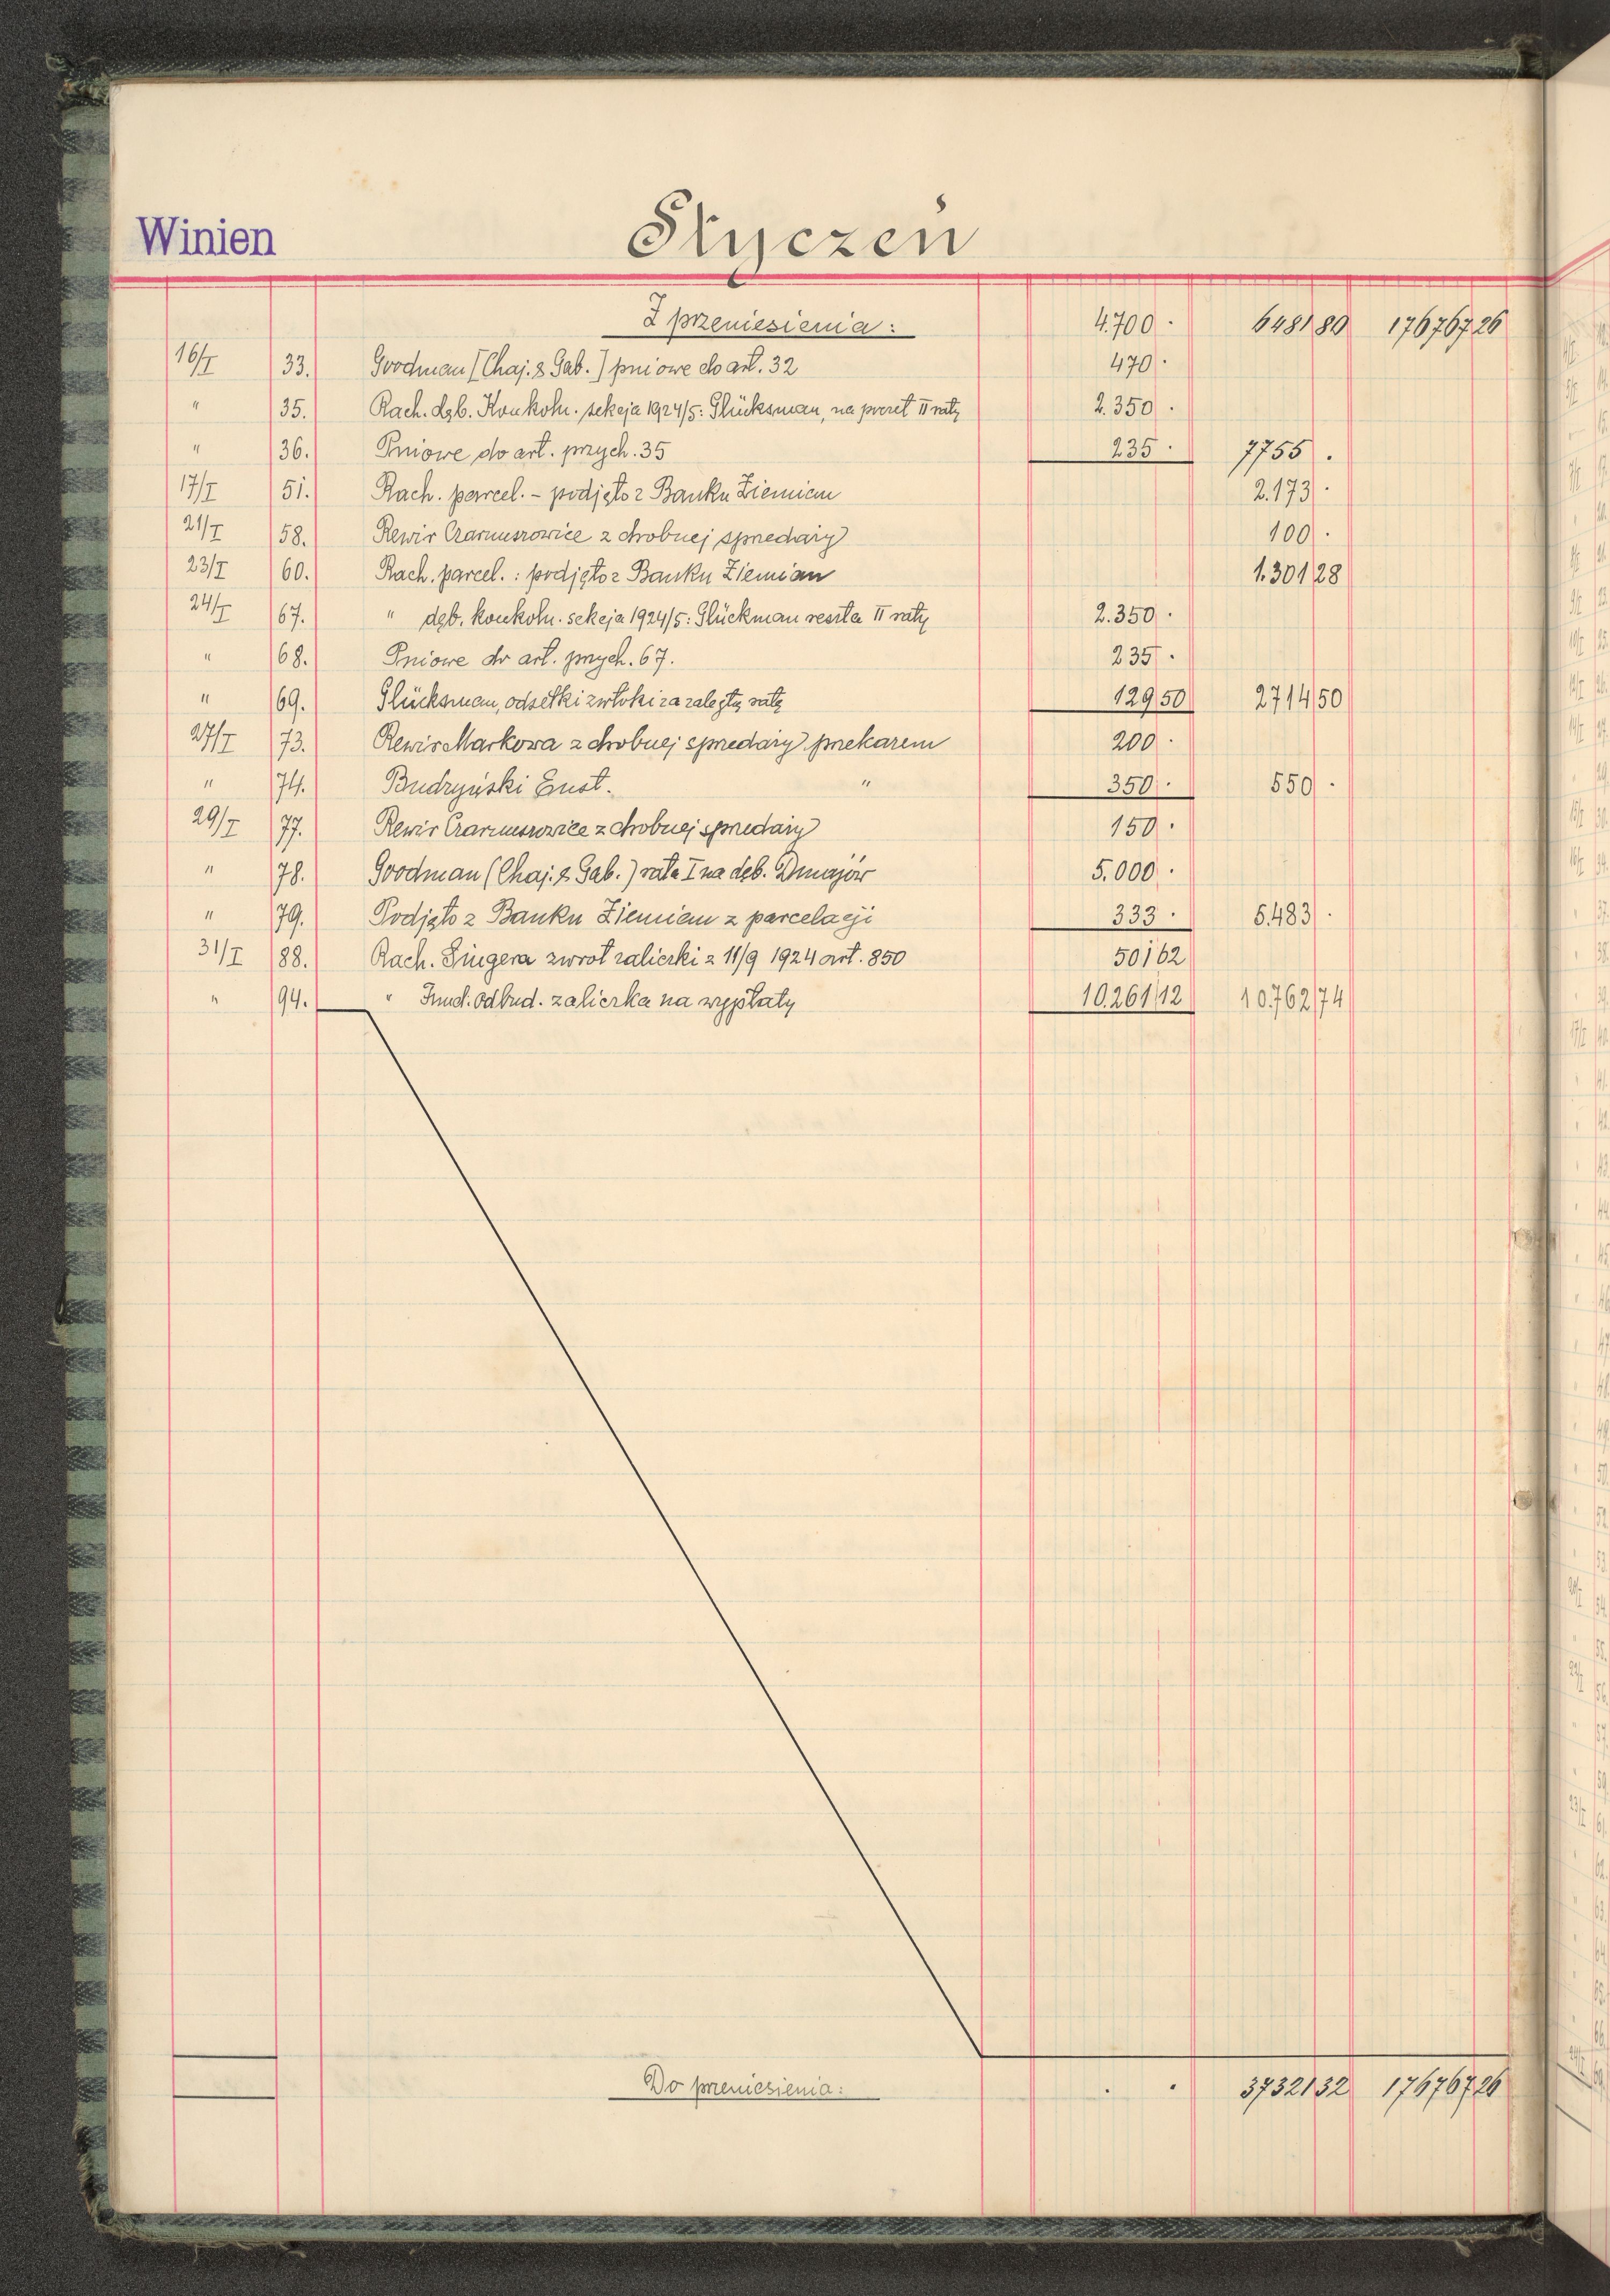 Winien
Styczeń
Z przeniesienia: 4.700 · 6481 80 176767 26
16/I 33. Goodman [Chaj. & Gab.] pniowe do art. 32 470 ·
" 35. Rach. dęb. Konkoln. sekcja 1924/5: Glücksman, na poczet II raty 2.350 ·
" 36. Pniowe do art. przych. 35 235 · 7755 ·
17/I 51. Rach. parcel. – podjęto z Banku Ziemian 2.173 ·
21/I 58. Rewir Czarnuszowice z drobnej sprzedaży 100 ·
23/I 60. Rach. parcel.: podjęto z Banku Ziemian 1.301 28
24/I 67. " dęb. konkoln. sekcja 1924/5: Glückman reszta II raty 2.350 ·
" 68. Pniowe do art. przych. 67. 235 ·
" 69. Glücksman, odsetki zwłoki za zaległą ratę 129 50 2714 50
27/I 73. Rewir Markowa z drobnej sprzedaży przekazem 200 ·
" 74. Budzyński Eust. " 350 · 550 ·
29/I 77. Rewir Czarnuszowice z drobnej sprzedaży 150 ·
" 78. Goodman (Chaj. & Gab.) rata I na dęb. Dmajów 5.000 ·
" 79. Podjęto z Banku Ziemian z parcelacji 333 · 5.483 ·
31/I 88. Rach. Singera zwrot zaliczki z 11/9 1924 art. 850 501 62
" 94. " Fund. odbud. zaliczka na wypłaty 10.261 12 10.762 74
Do przeniesienia: · · 37321 32 176767 26